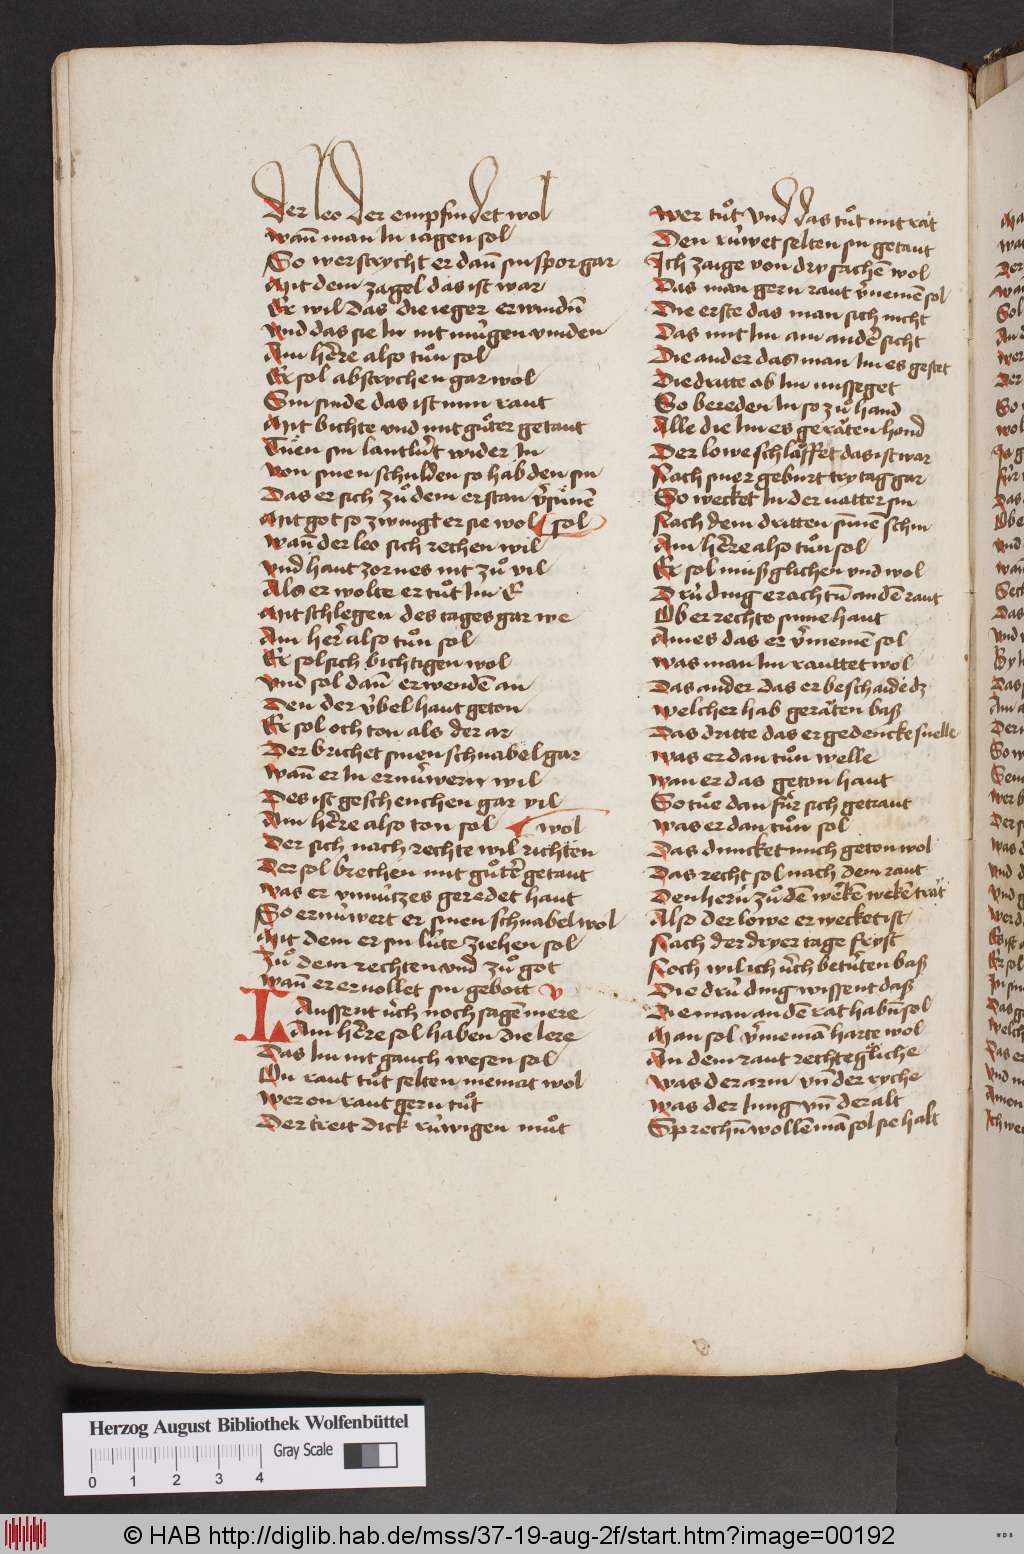 Der leo der empfindet wol
wan̄ man In iagen sol
So werstrycht er dan̄ sin spor gar
Mit dem zagel das ist war
Er wil das die ieger erwindn̄
vnd das sie In nit mu̍gen vinden
Am he̅re also tůn sol
Er sol abstrychen gar wol
Sin sinde das ist min raut
Mit bichte vnd mit gůter getaut
Tuͤen sin lantlu̍t wider In
von sinen schulden so hab den sin
Das er sich zů dem erstan v̓suͤnē
Mit got so zwingt er sie wol sol
wan̄ der leo sich rechen wil
vnd haut zornes nit zů vil
Als er wolte er tůt Im E
Mit schlegen des tages gar we
Am her̓ also tůn sol
Er sol sich bichtigen wol
vnd sol dan̄ erwendē an
Den der v̍bel haut geton
Er sol och ton als der ar
Der brichet sinen schnabel gar
wan̄ er In ernu̍wern wil
Des ist geschenchen gar vil
Am he̅re also ton sol wol
Der sich nach rechte wil richten
Der sol brechen mit gůter̓ getaut
was er vnnu̍tzes geredet haut
So ernu̍wert er sinen schnabel wol
Mit dem er sin lu̍te ziehen sol
Zů dem rechten vnd zů got
wan̄ er ervollet sin gebott
Laussent u̍ch noch sagē mere
Am he̅re sol haben die lere
Das Im nit gauch wesen sol
On raut tůt selten niemat wol
wer on raut gern tůt
Der treit dick ru̍wigen můt
wer tůt vnd das tůt mit rat
Den ru̍wet selten sin getaut
Ich zaige von dry sachē wol
Das man gern raut v̓nemē sol
Die erste das man sich nicht
Das mit Im am ander̓ sicht
Die ander das man Im es gestet
Die dritte ob Im misseget
So bereden In so zů hand
Alle die Im es geraͤten hond
Der lowe schlaͤffet das ist war
Nach siner geburt try tag gar
So wecket In der vatter sin
Nach dem dritten sūnē schin
Am he̅re also tůn sol
Er sol muͤßglichen vnd wol
Dru̍ ding erachtn̄ an dē raut
Ob er rechte sinne haut
Ains das er v̓nemē sol
was man Im rauttet wol
Das ander das er beschaidēdz
welcher hab geraͤten baß
Das dritte das er gedencke snelle
was er dan tůn welle
wan er das geton haut
So tuͤe dan fuͤr sich getraut
was er dan tůn sol
Das duncket mich geton wol
Das recht sol nach dem raut
Den hern̓ zů dē wekē wekē trat
Also der lowe erwecket ist
Nach der dryer tage fryst
Noch wil ich u̍ch betu̍ten baß
Die dru̍ ding wissent daß
Die man an dē rat habn̄ sol
Man sol v̓nemā harte wol
An dem raut rechtegliche
was der arm vn̄ der ryche
was der Iung vn̄ der alt
Sprechn̄ wollē mā sol sie halt
Herzog August Bibliothek Wolfenbüttel
Gray Scale
0 1 2 3 4
© HAB http://diglib.hab.de/mss/37-19-aug-2f/start.htm?image=00192